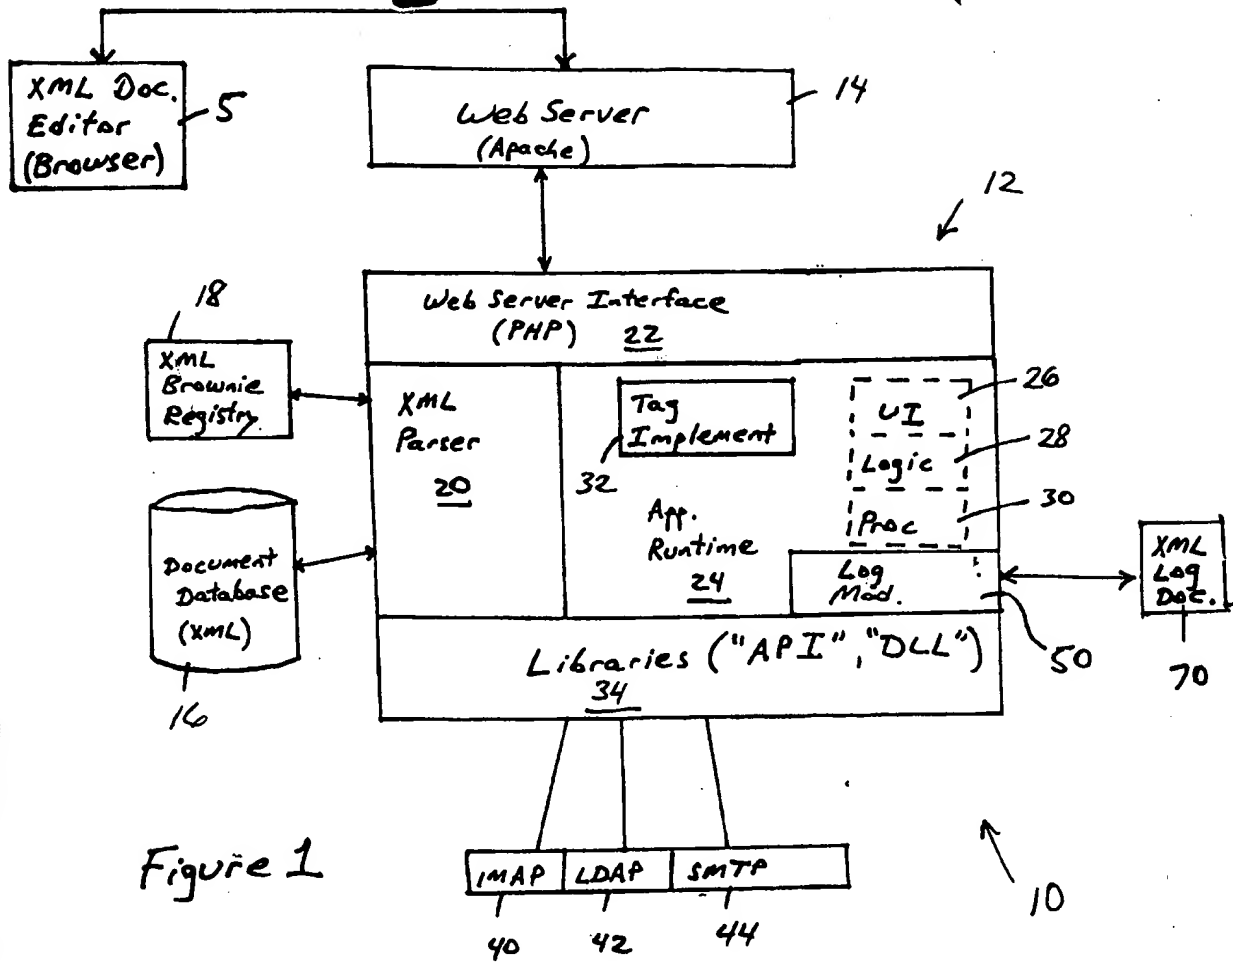 XML Doc.
Editor
(Browser)
5
Web Server
(Apache)
14
12
Web Server Interface
(PHP) 22
18
XML
Brownie
Registry
XML
Parser
20
Tag
Implement
32
UI
26
Logic
28
Proc
30
App.
Runtime
24
Log
Mod.
50
XML
Log
Doc.
70
Document
Database
(XML)
16
Libraries ("API", "DLL")
34
IMAP
LDAP
SMTP
40
42
44
Figure 1
10